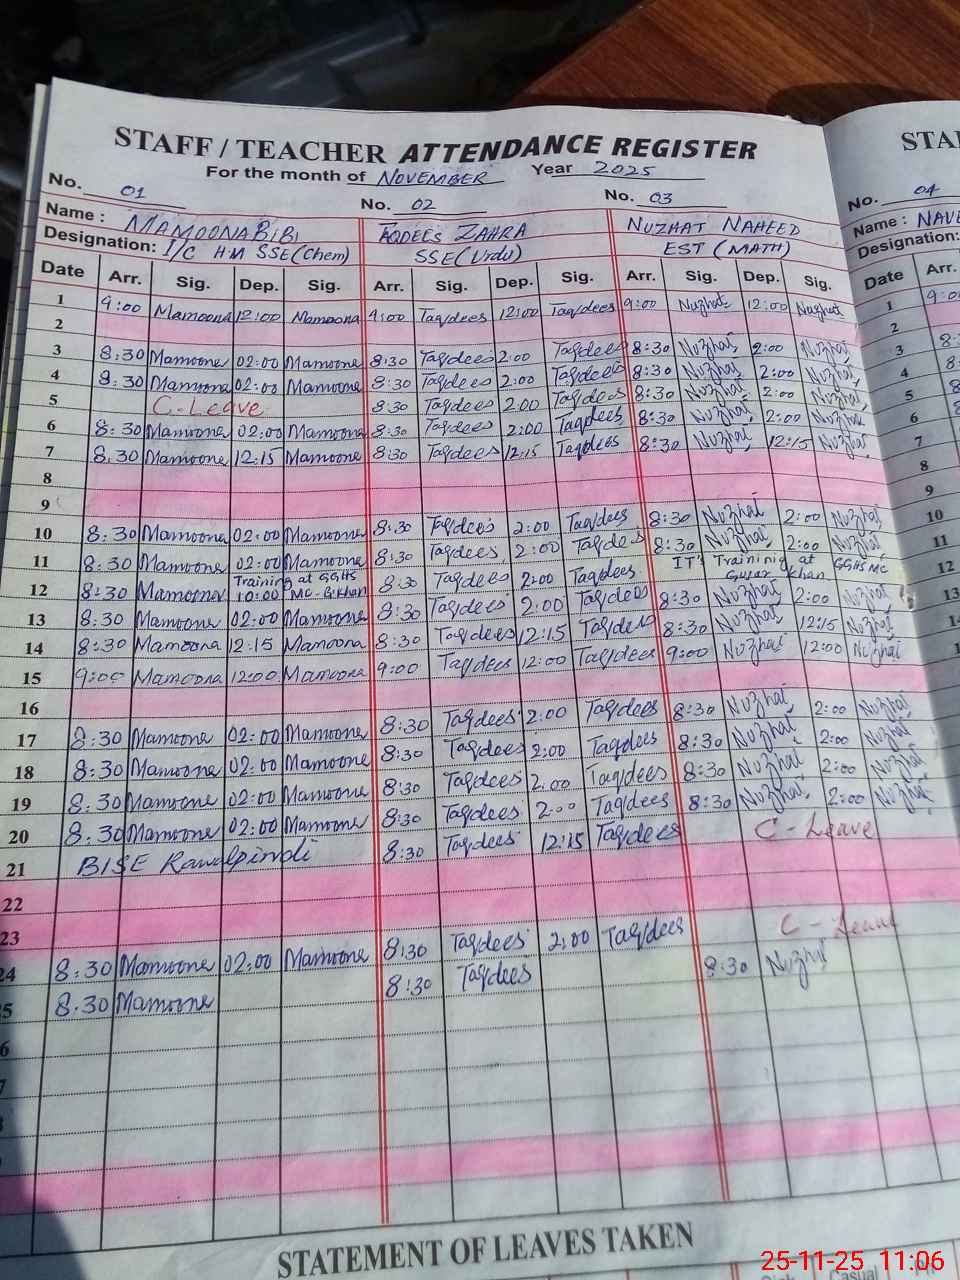 STAFF / TEACHER ATTENDANCE REGISTER
For the month of NOVEMBER Year 2025
No. 01 No. 02 No. 03
Name : MAMOONA BIBI TAQDEES ZAHRA NUZHAT NAHEED
Designation: I/C HM SSE(Chem) SSE(Urdu) EST (MATH)
Date Arr. Sig. Dep. Sig. Arr. Sig. Dep. Sig. Arr. Sig. Dep. Sig.
1 9:00 Mamoona 12:00 Mamoona 9:00 Taqdees 12:00 Taqdees 9:00 Nuzhat 12:00 Nuzhat
2
3 8:30 Mamoona 02:00 Mamoona 8:30 Taqdees 2:00 Taqdees 8:30 Nuzhat 2:00 Nuzhat
4 8:30 Mamoona 02:00 Mamoona 8:30 Taqdees 2:00 Taqdees 8:30 Nuzhat 2:00 Nuzhat
5 C-Leave 8:30 Taqdees 2:00 Taqdees 8:30 Nuzhat 2:00 Nuzhat
6 8:30 Mamoona 02:00 Mamoona 8:30 Taqdees 2:00 Taqdees 8:30 Nuzhat 2:00 Nuzhat
7 8:30 Mamoona 12:15 Mamoona 8:30 Taqdees 12:15 Taqdees 8:30 Nuzhat 12:15 Nuzhat
8
9
10 8:30 Mamoona 02:00 Mamoona 8:30 Taqdees 2:00 Taqdees 8:30 Nuzhat 2:00 Nuzhat
11 8:30 Mamoona 02:00 Mamoona 8:30 Taqdees 2:00 Taqdees 8:30 Nuzhat 2:00 Nuzhat
12 8:30 Mamoona Training at GGHS 10:00 MC-G.Khan 8:30 Taqdees 2:00 Taqdees IT's Training at GGHS MC Gujar Khan
13 8:30 Mamoona 02:00 Mamoona 8:30 Taqdees 2:00 Taqdees 8:30 Nuzhat 2:00 Nuzhat
14 8:30 Mamoona 12:15 Mamoona 8:30 Taqdees 12:15 Taqdees 8:30 Nuzhat 12:15 Nuzhat
15 9:00 Mamoona 12:00 Mamoona 9:00 Taqdees 12:00 Taqdees 9:00 Nuzhat 12:00 Nuzhat
16
17 8:30 Mamoona 02:00 Mamoona 8:30 Taqdees 2:00 Taqdees 8:30 Nuzhat 2:00 Nuzhat
18 8:30 Mamoona 02:00 Mamoona 8:30 Taqdees 2:00 Taqdees 8:30 Nuzhat 2:00 Nuzhat
19 8:30 Mamoona 02:00 Mamoona 8:30 Taqdees 2:00 Taqdees 8:30 Nuzhat 2:00 Nuzhat
20 8:30 Mamoona 02:00 Mamoona 8:30 Taqdees 2:00 Taqdees 8:30 Nuzhat 2:00 Nuzhat
21 BISE Rawalpindi 8:30 Taqdees 12:15 Taqdees C-Leave
22
23
24 8:30 Mamoona 02:00 Mamoona 8:30 Taqdees 2:00 Taqdees C-Leave
5 8:30 Mamoona 8:30 Taqdees 8:30 Nuzhat
6
7
STATEMENT OF LEAVES TAKEN
Casual
STA
No. 04
Name : NAV
Designation:
Date Arr.
1 9:0
2
3 8:
4 8:
5
6
7
8
9
10
11
12
13
14
1
25-11-25 11:06